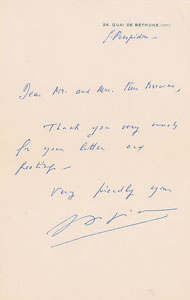 24, QUAI DE BÉTHUNE, (IVe)
G Pompidou
Dear Mr. and Mrs.
Thank you very much
for your letter and
feelings
Very friendly your